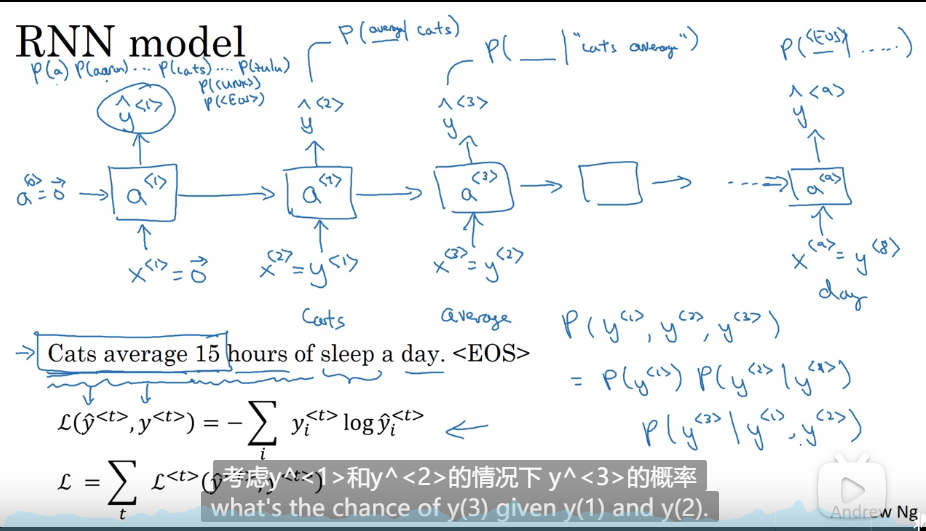 RNN model
P(a) P(aaron) ... P(cats) .... P(zulu)
P(<UNK>)
P(<EOS>)
P(average | cats)
P(__ | "cats average")
P(<EOS> | .....)
ŷ<1> ŷ<2> ŷ<3> ŷ<9>
a<0> = 0⃗ → a<1> → a<2> → a<3> → → ....→ a<9>
x<1> = 0⃗ x<2> = y<1> x<3> = y<2> x<9> = y<8>
Cats average day
→ Cats average 15 hours of sleep a day. <EOS>
P(y<1>, y<2>, y<3>)
= P(y<1>) P(y<2> | y<1>)
P(y<3> | y<1>, y<2>)
ℒ(ŷ<t>, y<t>) = − ∑i yi<t> log ŷi<t> ←
ℒ = ∑t ℒ<t>(ŷ<t>, y<t>)
考虑y^<1>和y^<2>的情况下 y^<3>的概率
what's the chance of y(3) given y(1) and y(2).
Andrew Ng